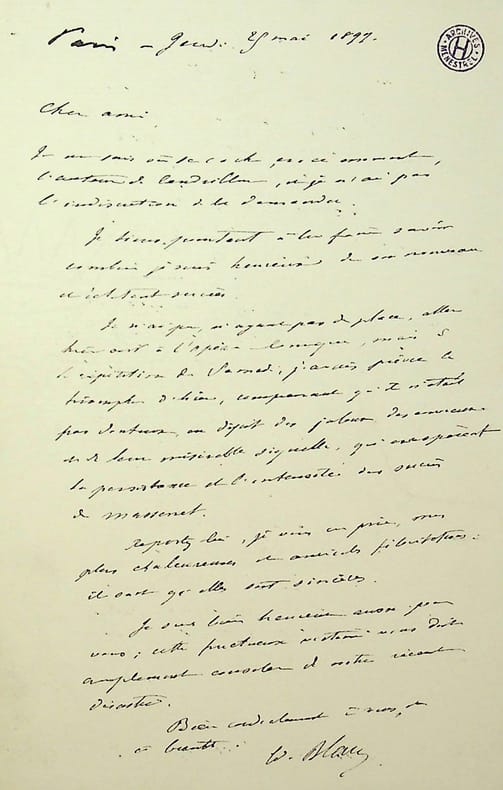 Paris - Jeudi 25 mai 1899.
ARCHIVES
H
MENESTREL
Cher ami,
Je ne sais où se cache, en ce moment,
l'auteur de Cendrillon, et je n'ai pas
l'indiscrétion de le demander.
Je tiens pourtant à lui faire savoir
combien je suis heureux de son nouveau
et éclatant succès.
Je n'ai pu, n'ayant pas de place, aller
hier soir à l'Opéra Comique, mais à
la répétition de Samedi, j'avais prévu le
triomphe d'hier, comprenant qu'il n'était
pas douteux, en dépit des jaloux des envieux
et de leur misérable séquelle, qui
la persistance et l'intensité des succès
de Massenet.
Reportez lui, je vous en prie, mes
plus chaleureuses et amicales félicitations:
il sait qu'elles sont sincères.
Je suis bien heureux aussi pour
vous; cette fructueuse victoire vous doit
amplement consoler de votre récent
désastre.
Bien cordialement à vous, et
à bientôt.